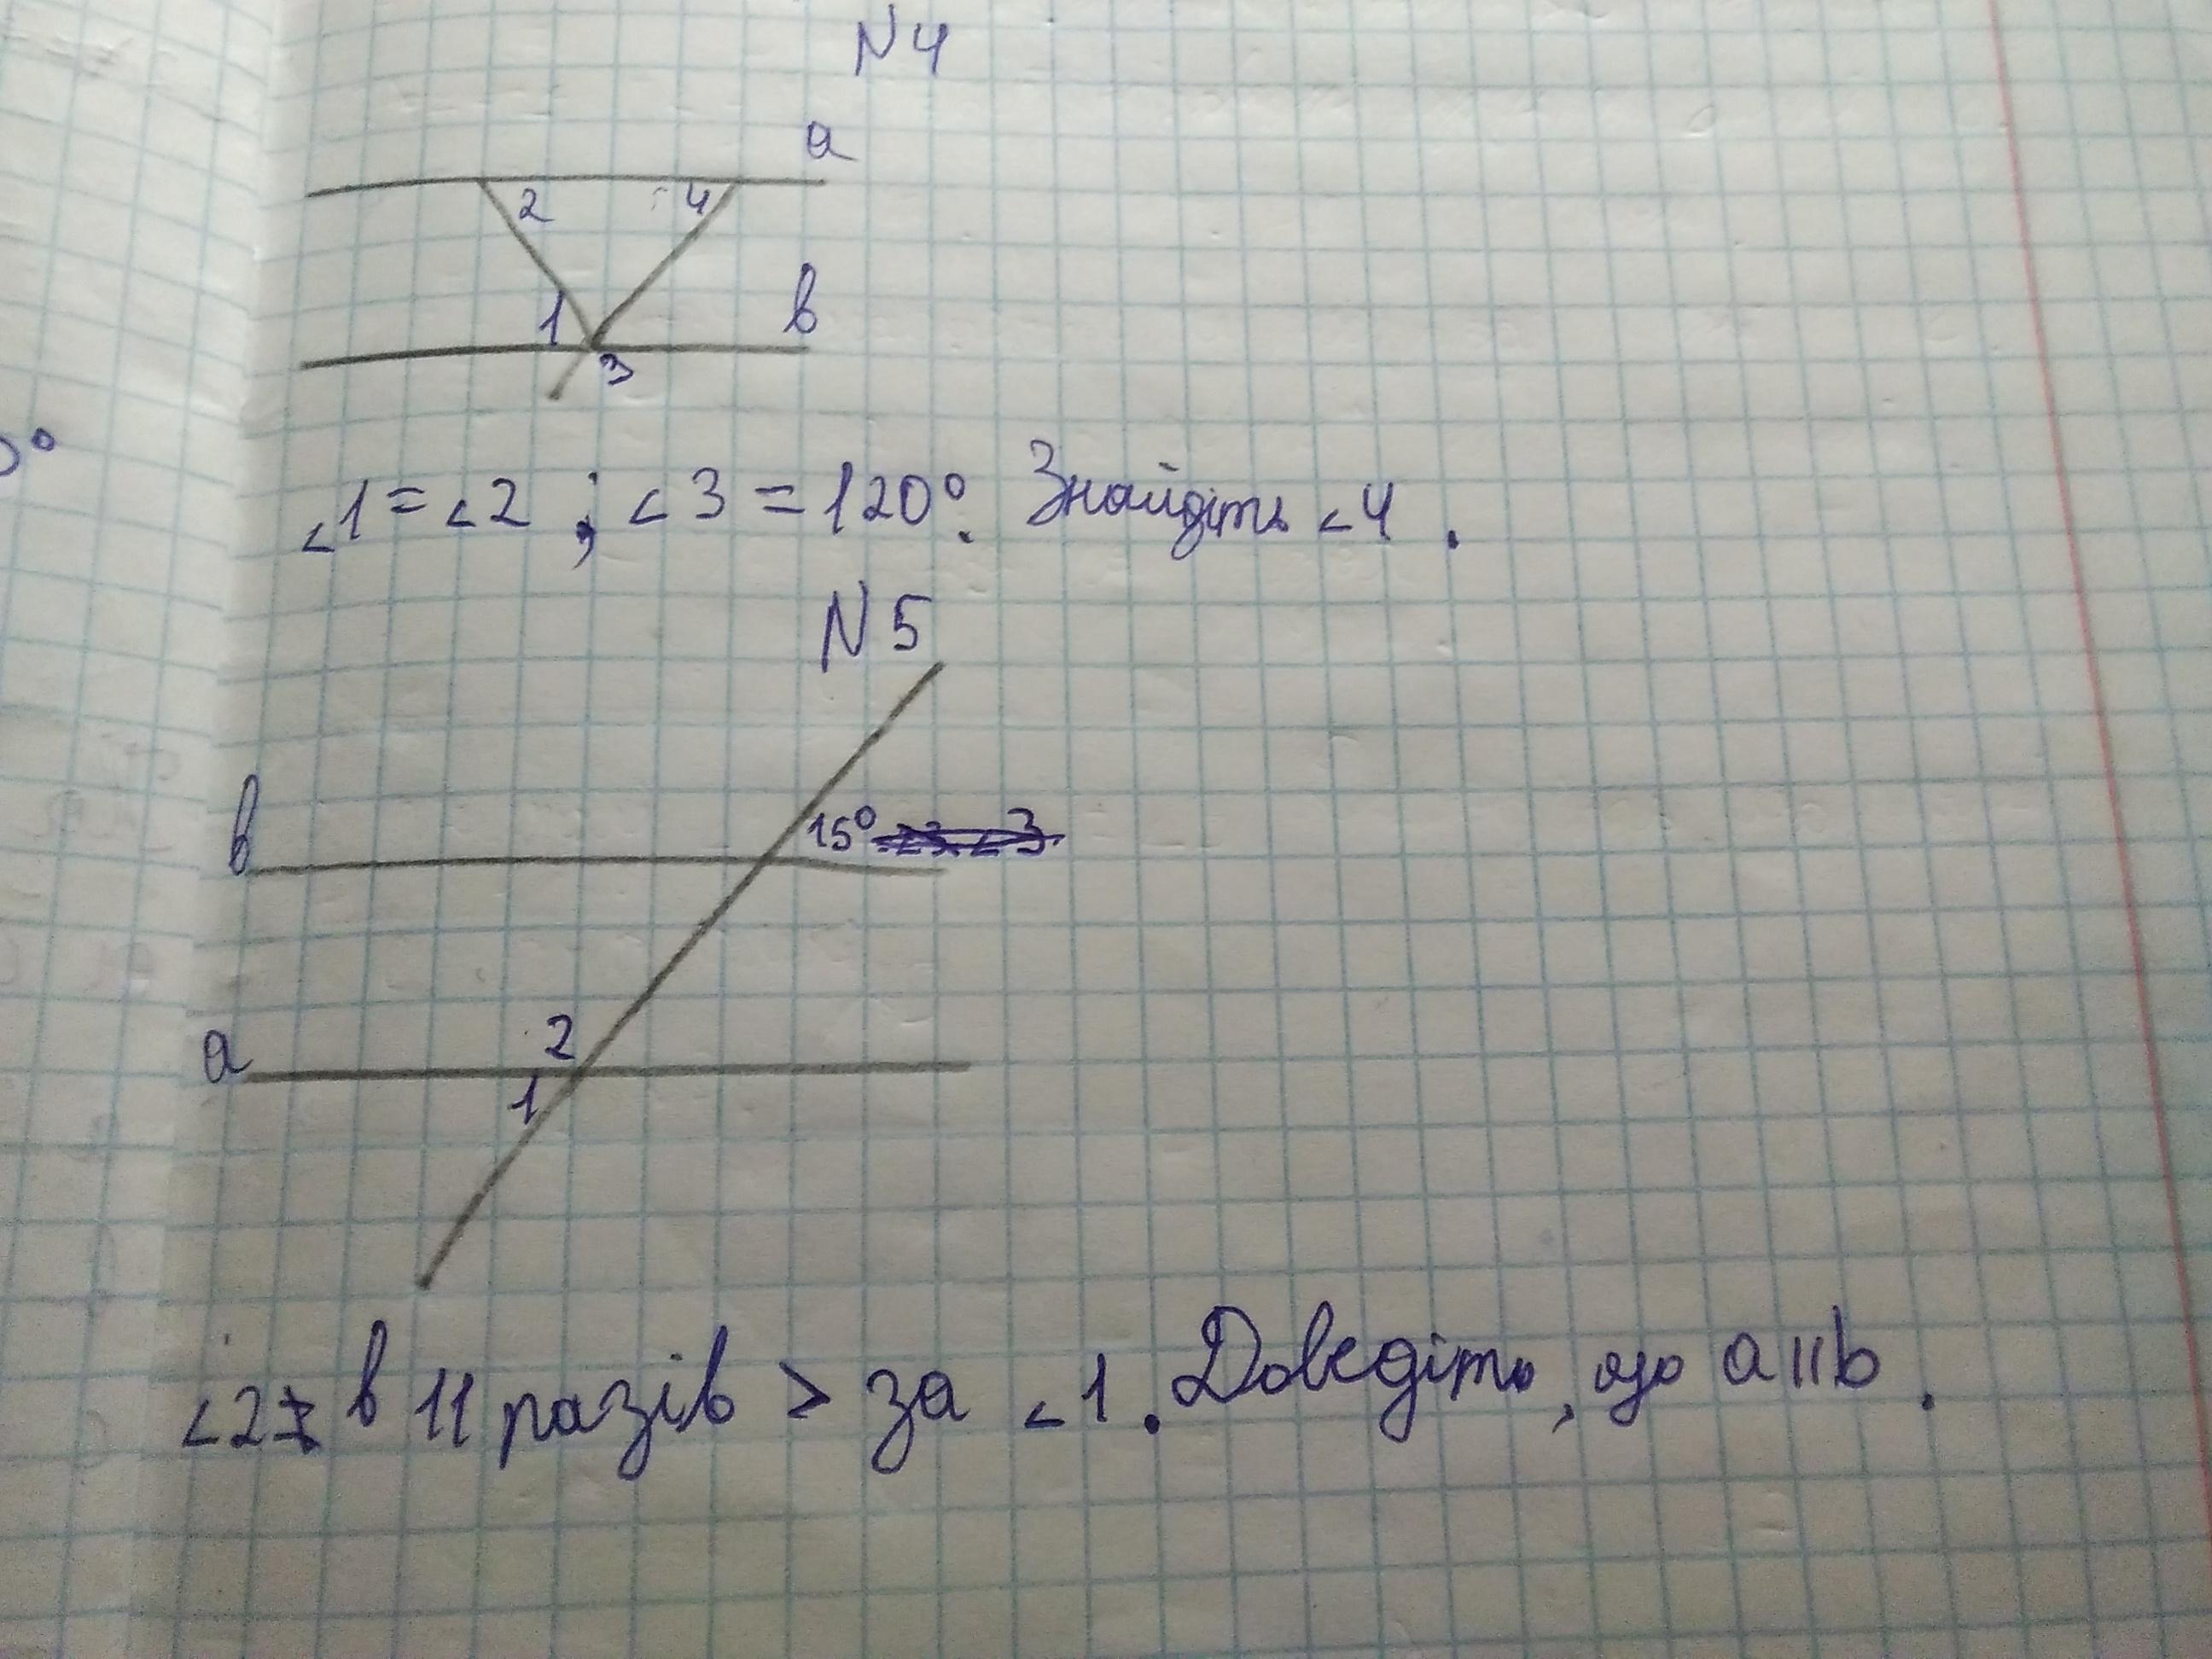 N4
a
2 4
1 в
3
0°
<1=<2 ; <3=120°. Знайдіть <4.
N5
в
15°
2
a
1
<2 в 11 разів > за <1. Доведіть, що a||b.